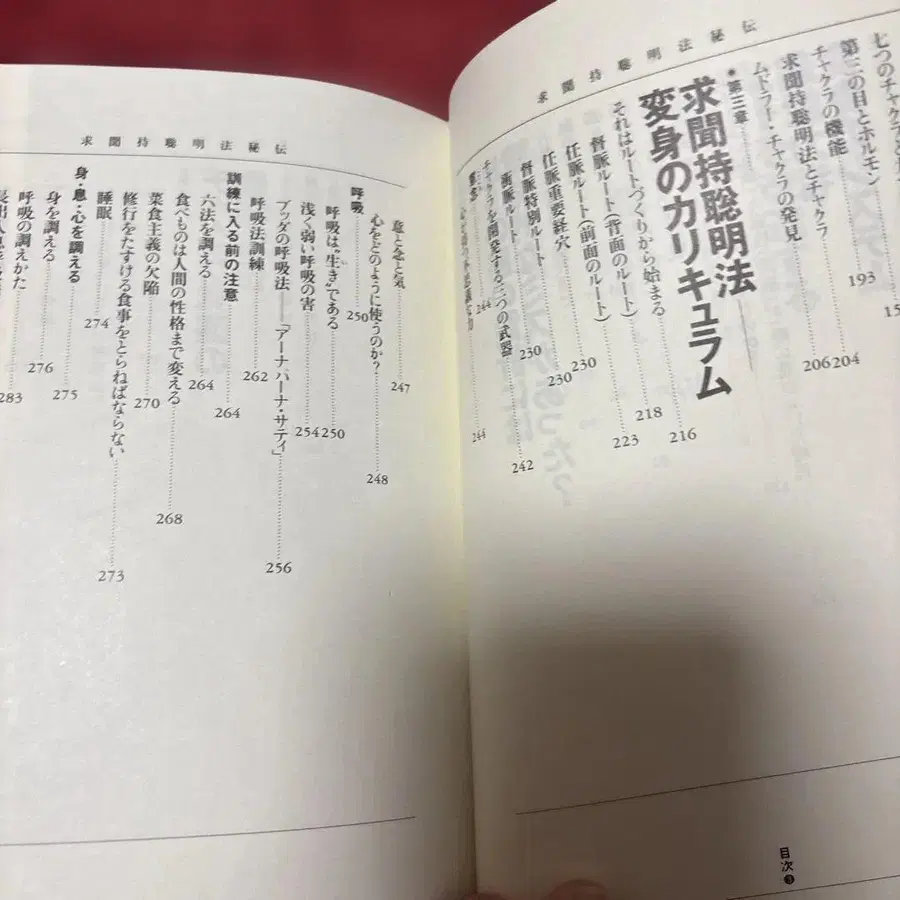 求聞持聡明法秘伝
七つのチャクラと
第三の目とホルモン 193
チャクラの機能 204
求聞持聡明法とチャクラ 206
ムドラー・チャクラの発見
●第三章
求聞持聡明法
変身のカリキュラム 216
それはルートづくりから始まる 218
督脈ルート(背面のルート) 223
任脈ルート(前面のルート) 230
任脈重要経穴 230
督脈特別ルート 230
衝脈ルート 242
チャクラを開発する三つの武器 244
244
目次❸
求聞持聡明法秘伝
意と念と気 247
心をどのように使うのか? 248
呼吸 250
呼吸は“生き”である 250
浅く弱い呼吸の害 254
ブッダの呼吸法――「アーナパーナ・サティ」 256
呼吸法訓練 262
訓練に入る前の注意 264
六法を調える 264
食べものは人間の性格まで変える 268
菜食主義の欠陥 270
修行をたすける食事をとらねばならない 273
睡眠 274
身・息・心を調える 275
身を調える 276
呼吸の調えかた 283